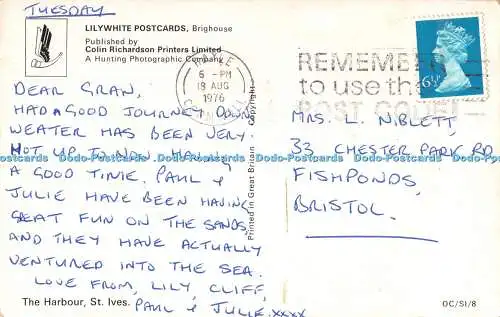 TUESDAY
LILYWHITE POSTCARDS, Brighouse
Published by
Colin Richardson Printers Limited
A Hunting Photographic Company
6 - PM
18 AUG
1976
REMEMBER
to use the
POST CODE
6½P
DEAR GRAN,
HAD A GOOD JOURNEY DOWN,
WEATER HAS BEEN VERY
HOT UP TO NOW. HAVING
A GOOD TIME. PAUL &
JULIE HAVE BEEN HAVING
GEAT FUN ON THE SANDS,
AND THEY HAVE ACTUALLY
VENTURED INTO THE SEA.
LOVE FROM, LILY, CLIFF,
PAUL & JULIE. xxxx
The Harbour, St. Ives.
Printed in Great Britain
Copyright
MRS. L. NIBLETT,
33 CHESTER PARK RD
FISHPONDS,
BRISTOL.
OC/SI/8
Dodo-Postcards Dodo-Postcards Dodo-Postcards Dodo-Postcards